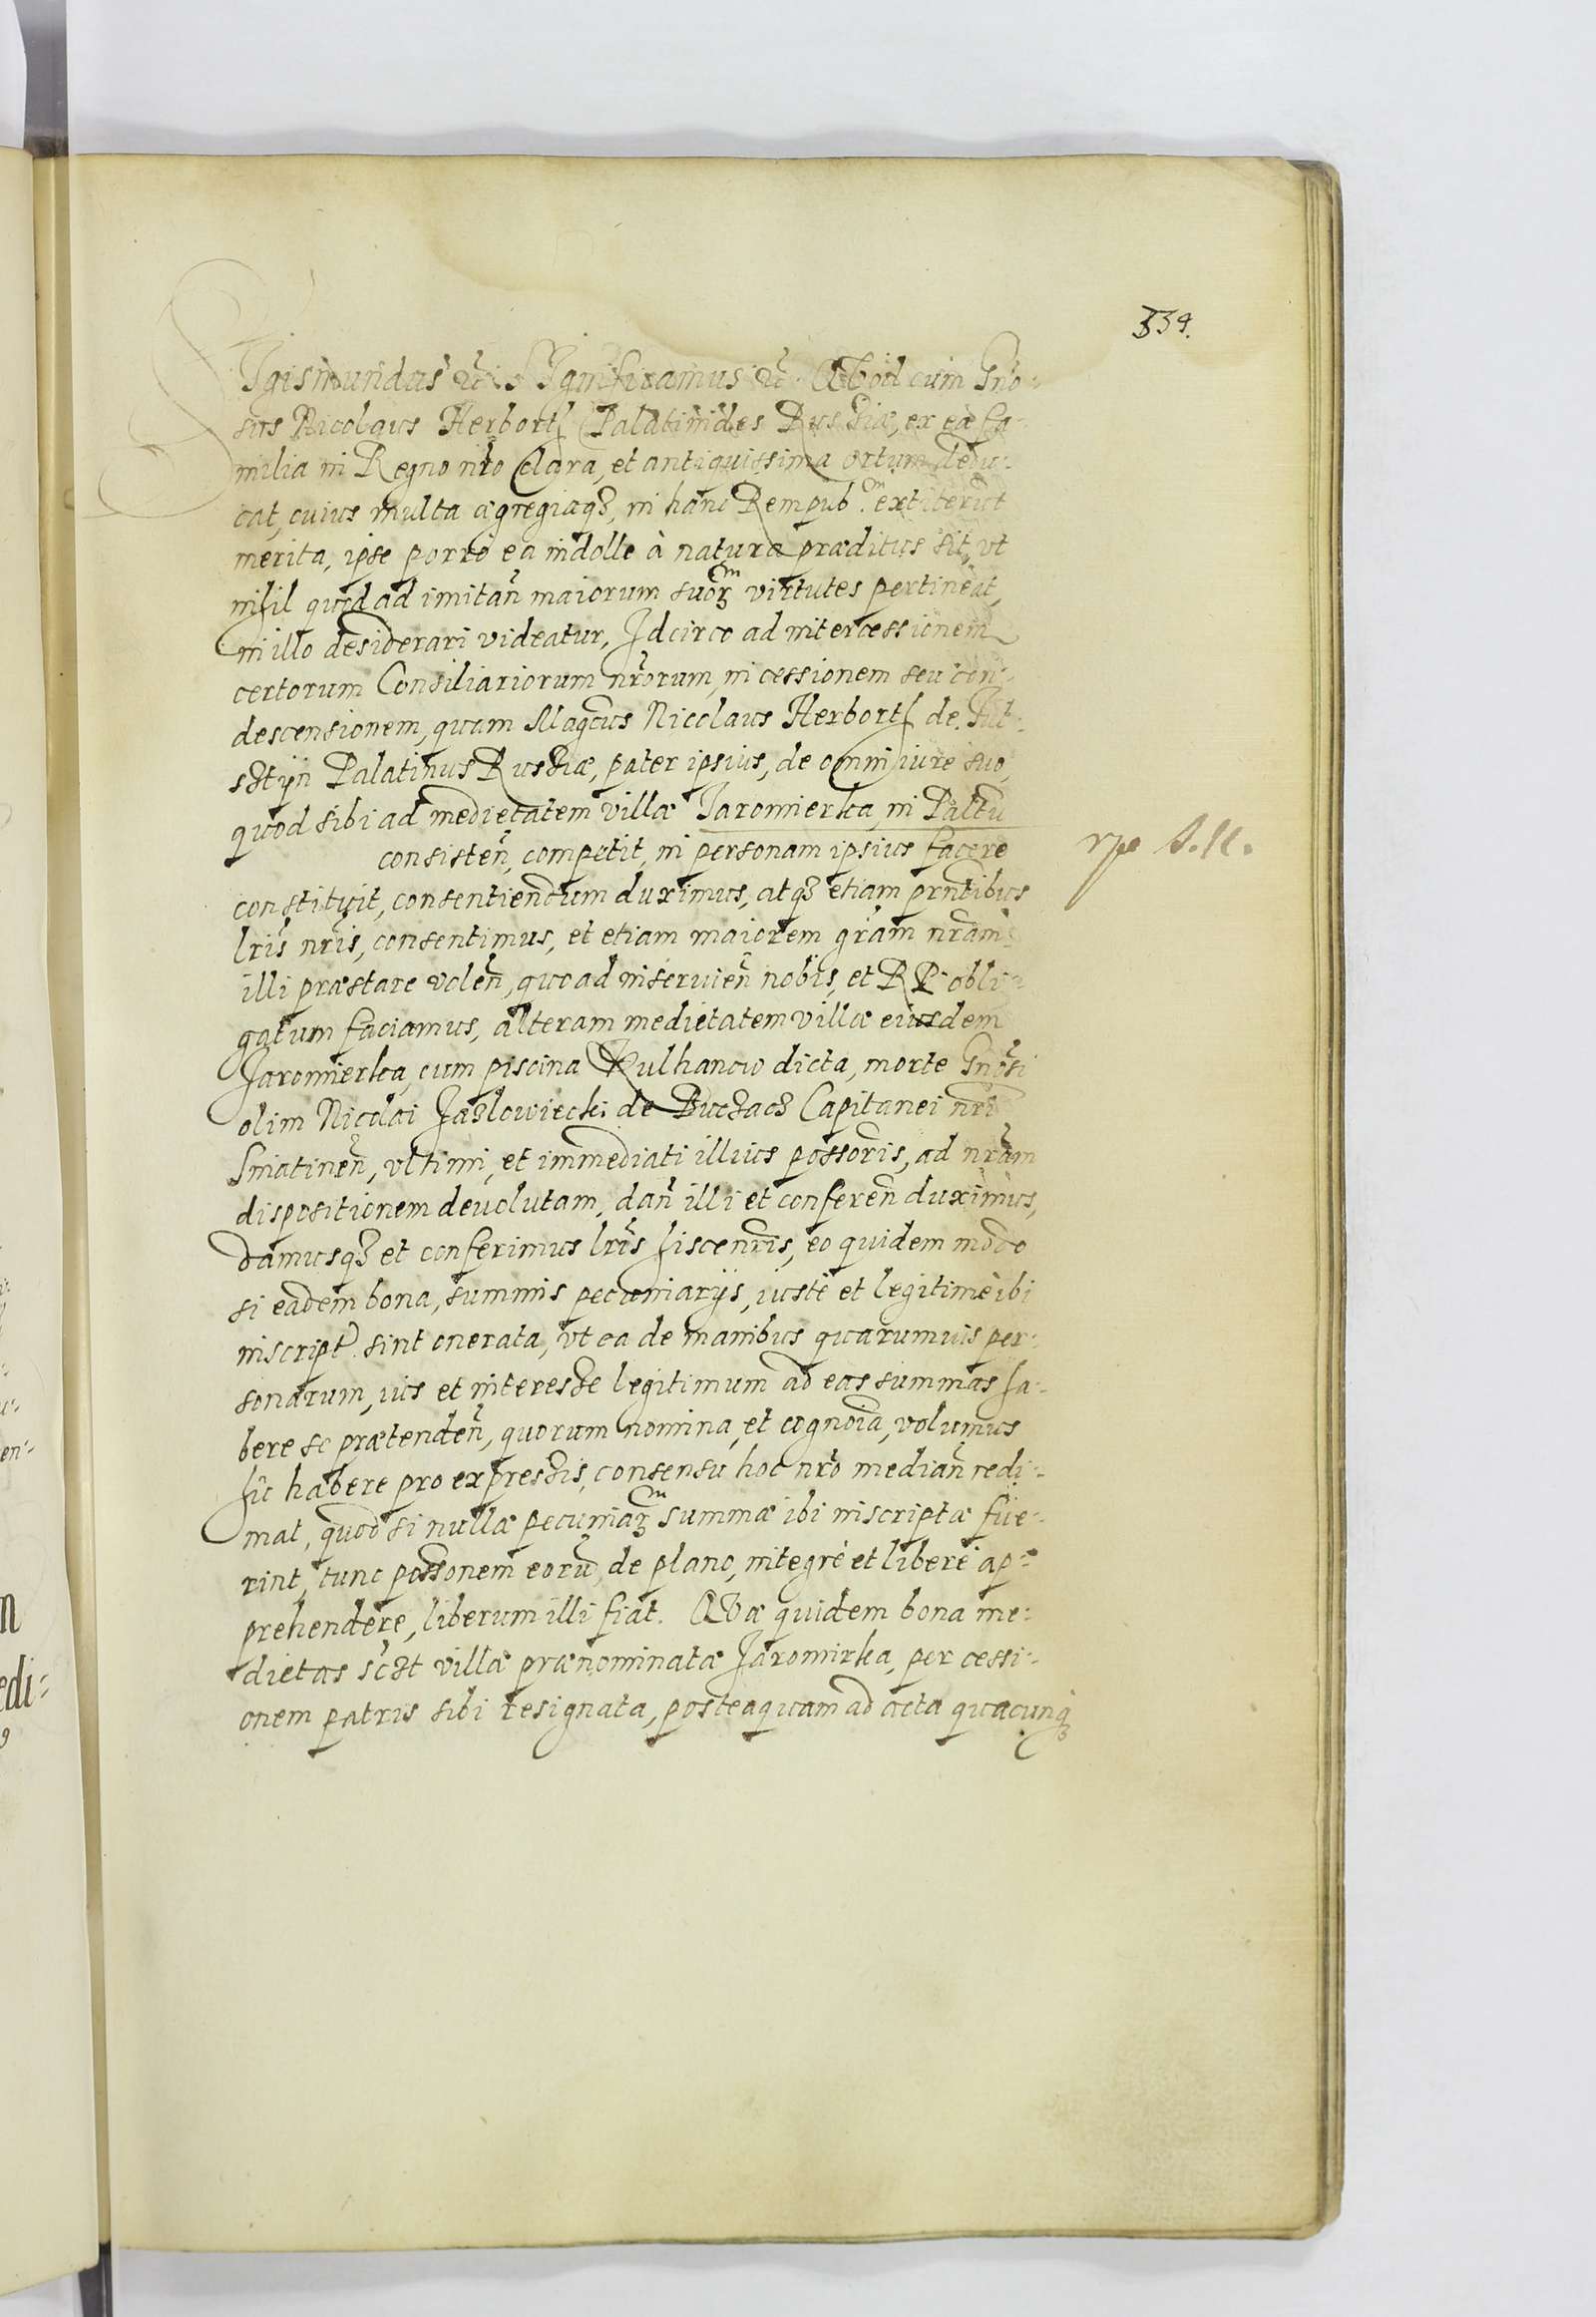 339.
Sigismundus etc. Significamus etc. Quod cum Gnõ-
sus Nicolaus Herborth Palatinides Russiæ, ex ea fa-
milia in Regno nr̃o clara, et antiquissima ortum dedu-
cat, cuius multa egregiaq3, in hanc Rempub: extiterunt
merita, ipse porro ea indolle à natura præditus sit, vt
nihil quod ad imitañ maiorum suorꝝ virtutes pertineat,
in illo desiderari videatur, Idcirco ad intercessionem
certorum Consiliariorum nr̃orum, in cessionem seu con-
descensionem, quam Magcus Nicolaus Herborth de Ful-
sstyn Palatinus Russiæ, pater ipsius, de omni iure suo,
quod sibi ad medietatem villæ Jaromierka, in Paltu
consisteñ, competit, in personam ipsius facere
constituit, consentiendum duximus, atq3 etiam pr̃ntibus
lr̃is nr̃is, consentimus, et etiam maiorem gr̃am nr̃am
illi præstare voleñ, quo ad inservieñ nobis, et RP obli-
gatum faciamus, alteram medietatem villæ eiusdem
Jaromierka, cum piscina Kulhanow dicta, morte Gnõsi
olim Nicolai Jazlowiecki de Buczacz Capitanei nr̃i
Sniatineñ, vltimi, et immediati illius possoris, ad nr̃am
dispositionem devolutam, dañ illi et confereñ duximus,
damusq3 et conferimus lr̃is hisce nr̃is, eo quidem modo
si eadem bona, summis pecuniarys, iustè et legitimè ibi
inscript. sint onerata, vt ea de manibus quarumuis per-
sonarum, ius et interesse legitimum ad eas summas ha-
bere se prætendeñ, quorum nomina, et cognoĩa, volumus
hic habere pro expressis, consensu hoc nr̃o mediañ redi-
mat, quod si nullæ pecuniarꝝ summæ ibi inscriptæ fue-
rint, tunc possonem eorũ, de plano, integrè et liberè ap-
prehendere, liberum illi fiat. Quæ quidem bona me-
dietas sc̃zt villæ prænominatæ Jaromirka, per cessi-
onem patris sibi resignata, posteaquam ad acta quæcunq3